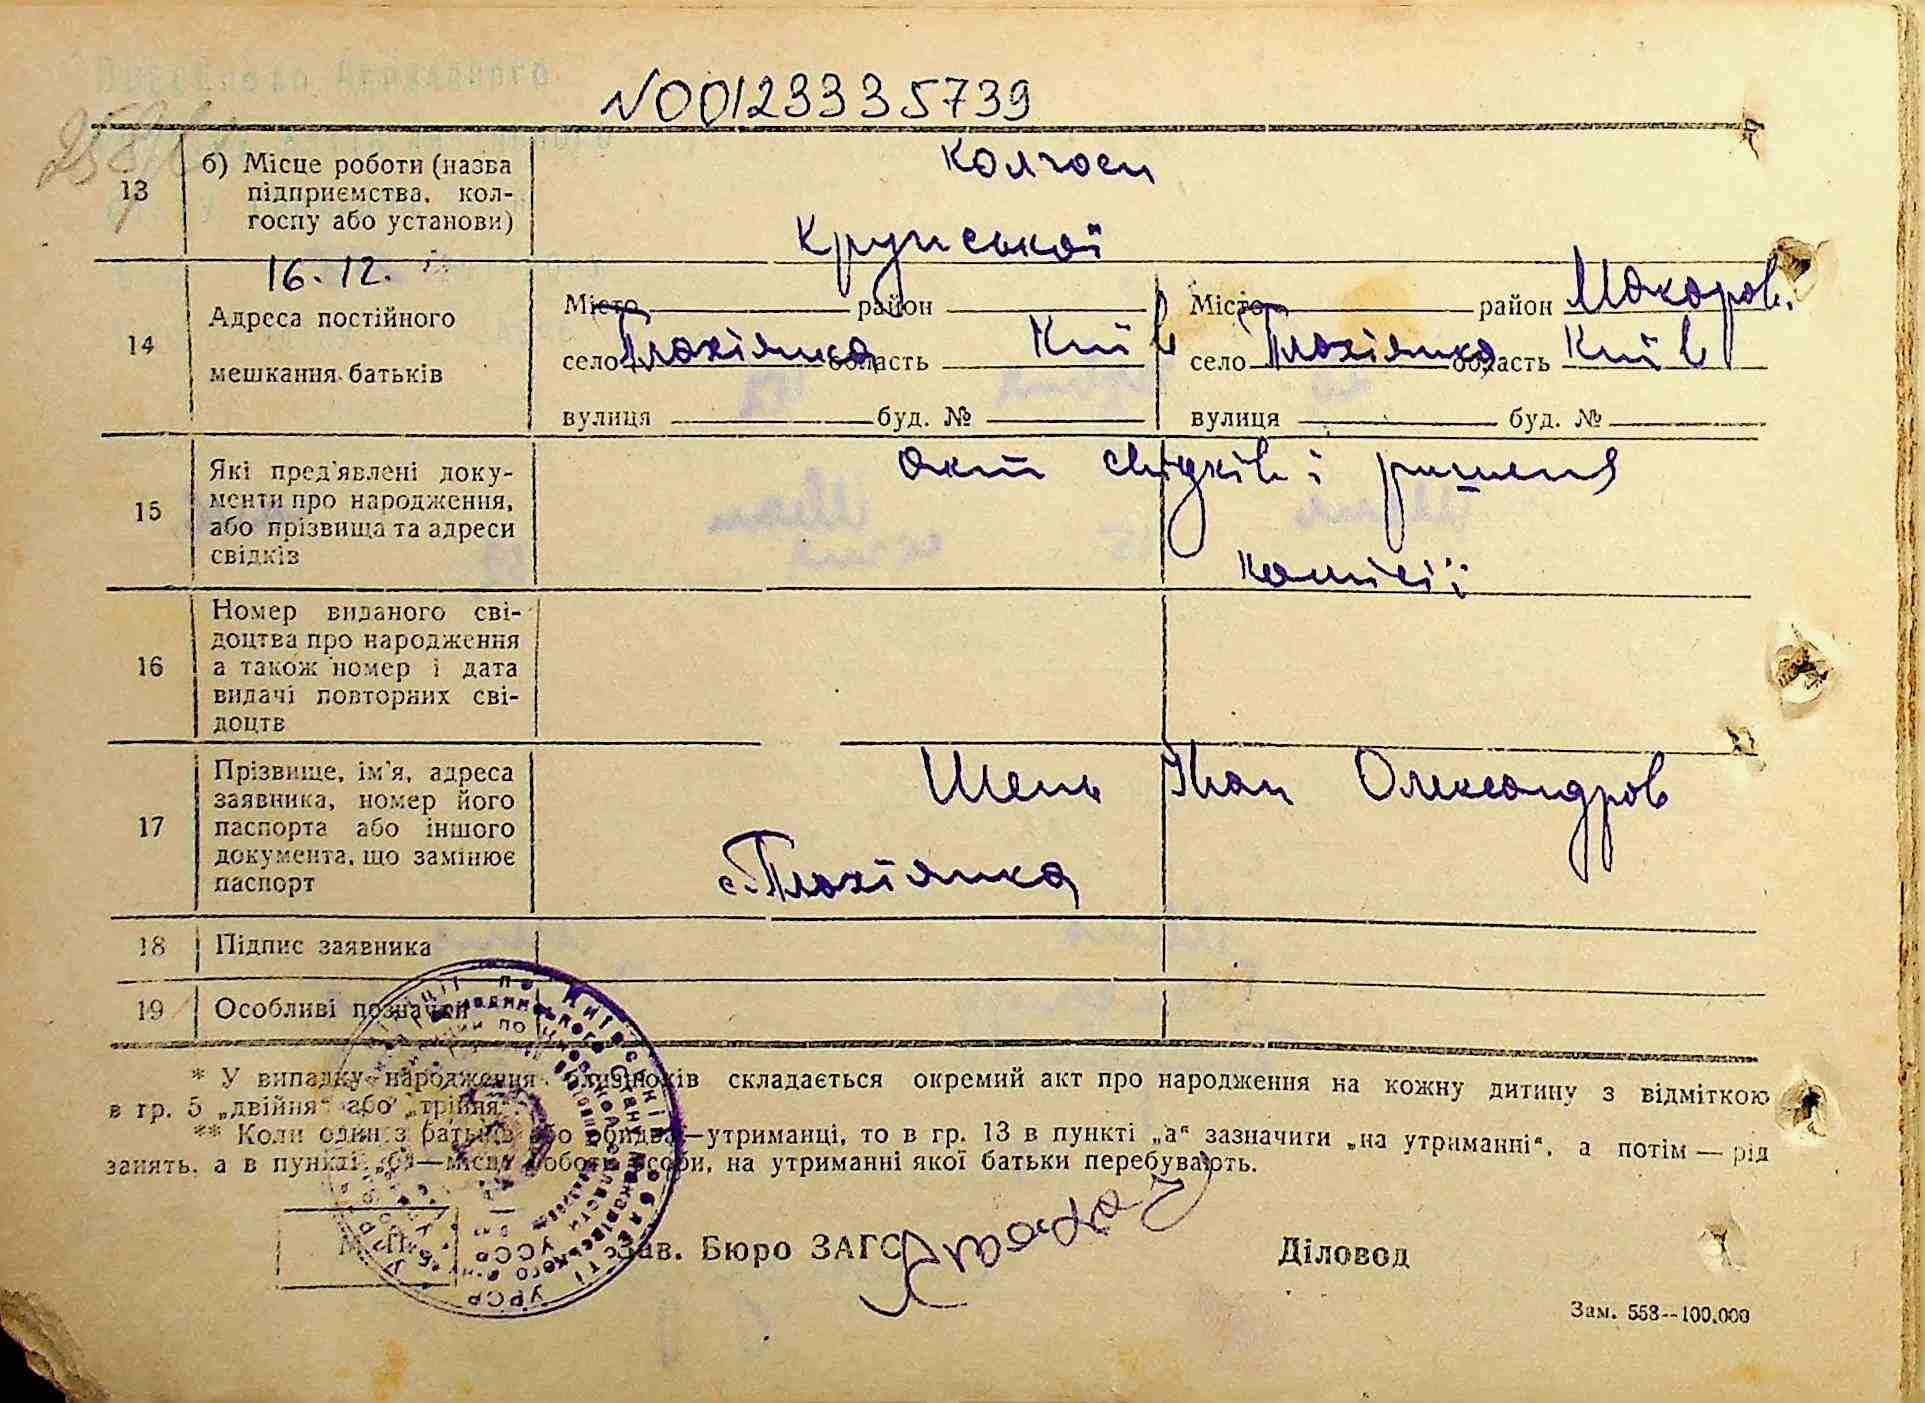 N00123335739
13 б) Місце роботи (назва підприємства, колгоспу або установи) колгосп
Крупської
16.12.
14 Адреса постійного мешкання батьків
Місто район Місто район Макаров.
село Плахтянка область Київ село Плахтянка область Київ
вулиця буд. № вулиця буд. №
15 Які пред'явлені документи про народження, або прізвища та адреси свідків
акт свідків і рішення
комісії
16 Номер виданого свідоцтва про народження а також номер і дата видачі повторних свідоцтв
17 Прізвище, ім'я, адреса заявника, номер його паспорта або іншого документа, що замінює паспорт
Шень Іван Олександров
с. Плахтянка
18 Підпис заявника
19 Особливі позначки
* У випадку народження близнюків складається окремий акт про народження на кожну дитину з відміткою
в гр. 5 „двійня“ або „трійня“.
** Коли один з батьків або обидва—утриманці, то в гр. 13 в пункті „а“ зазначити „на утриманні“, а потім — рід
занять, а в пункті „б“—місце роботи особи, на утриманні якої батьки перебувають.
М. П. Зав. Бюро ЗАГС Діловод
Зам. 558--100.000